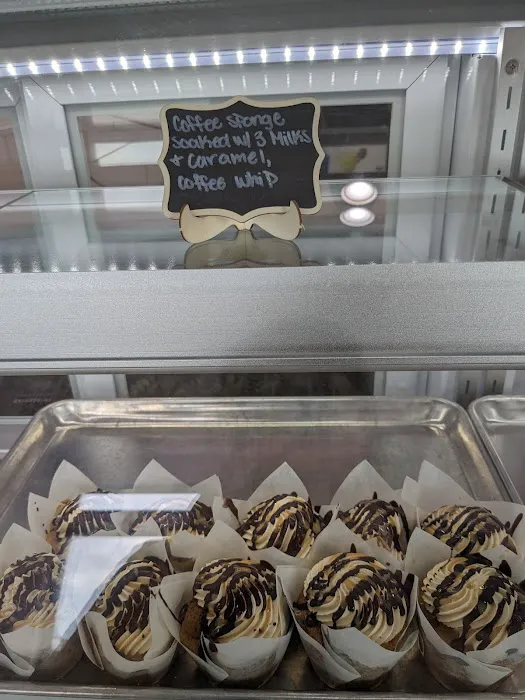 Coffee sponge
soaked w/ 3 Milks
+ caramel,
coffee whip